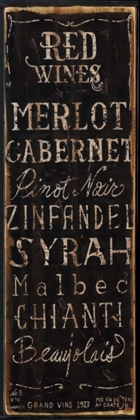 RED
WINES
MERLOT
CABERNET
Pinot Noir
ZINFANDEL
SYRAH
Malbec
CHIANTI
Beaujolais
GRAND VINS 1927